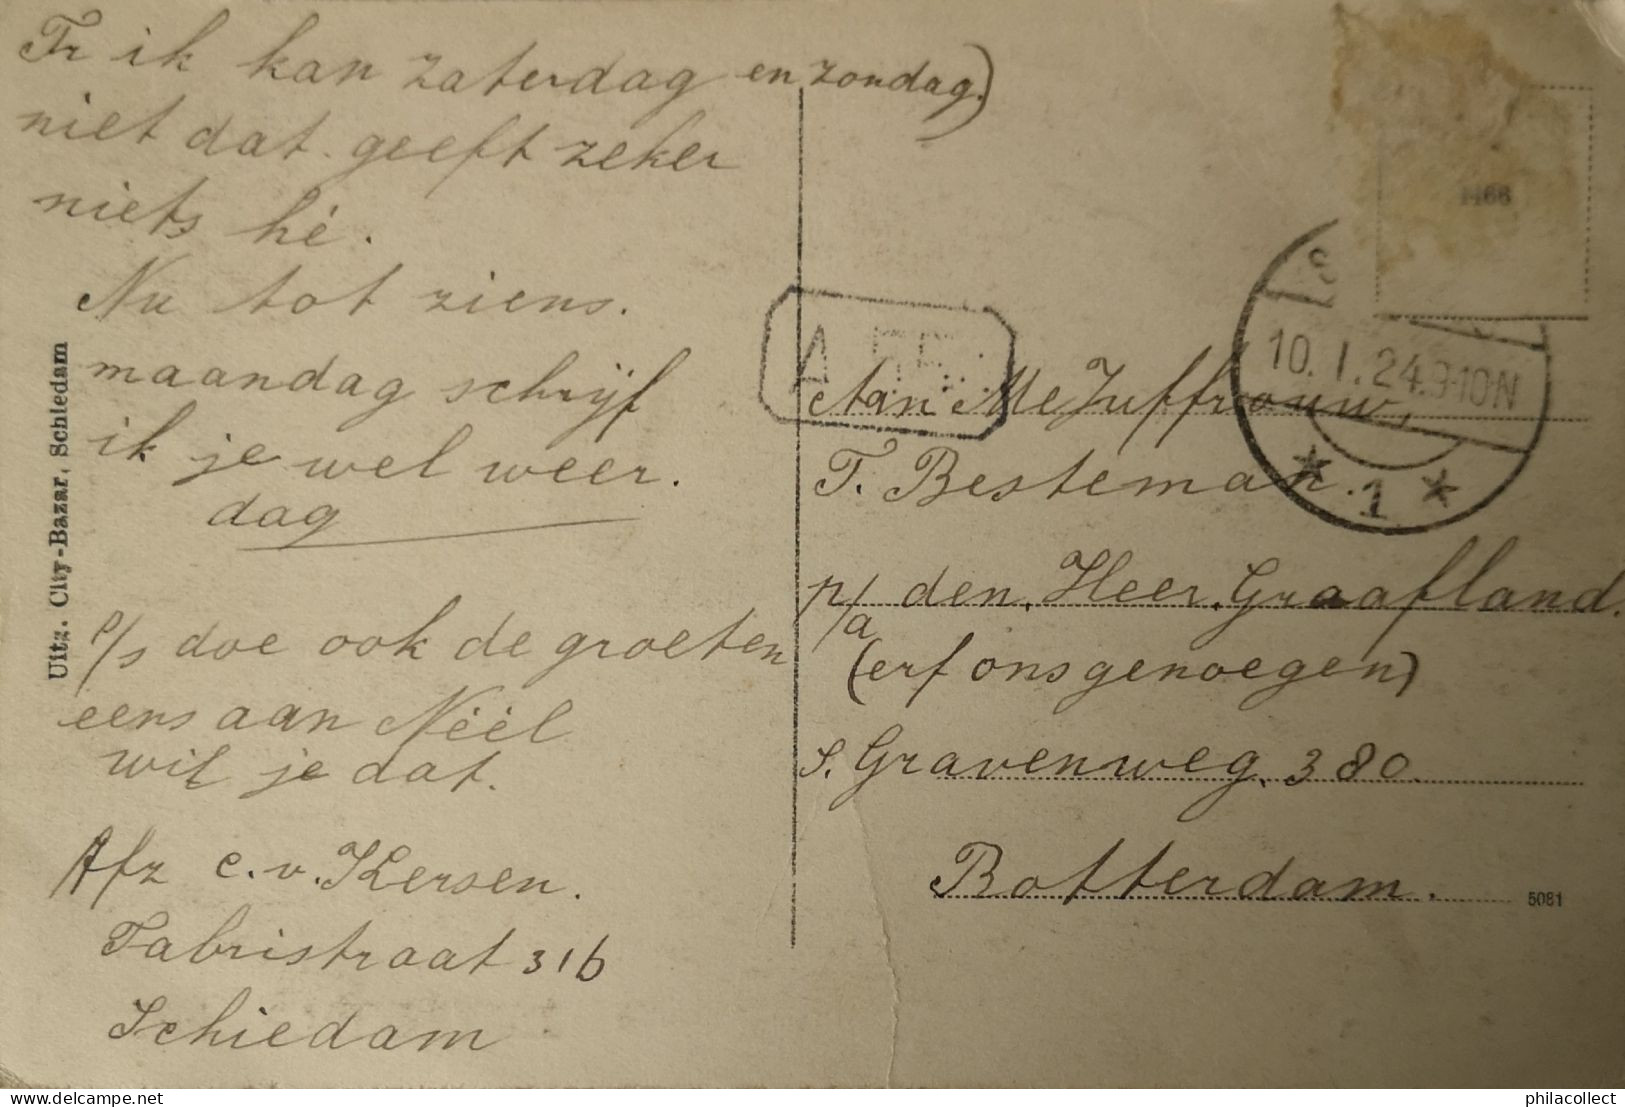 Fr ik kan zaterdag en zondag)
niet dat geeft zeker
niets hé.
Nu tot ziens.
maandag schrijf
ik je wel weer.
dag
P/s doe ook de groeten
eens aan Néél
wil je dat.
Afz C. v. Kersen.
Fabristraat 31b
Schiedam
Uitg. City-Bazar, Schiedam
1166
10.1.24.9-10N
1
Aan MeJuffrouw,
F. Besteman.
p/a den Heer Graafland.
(erf ons genoegen)
s. Gravenweg. 380.
Rotterdam.
5081
philacollect